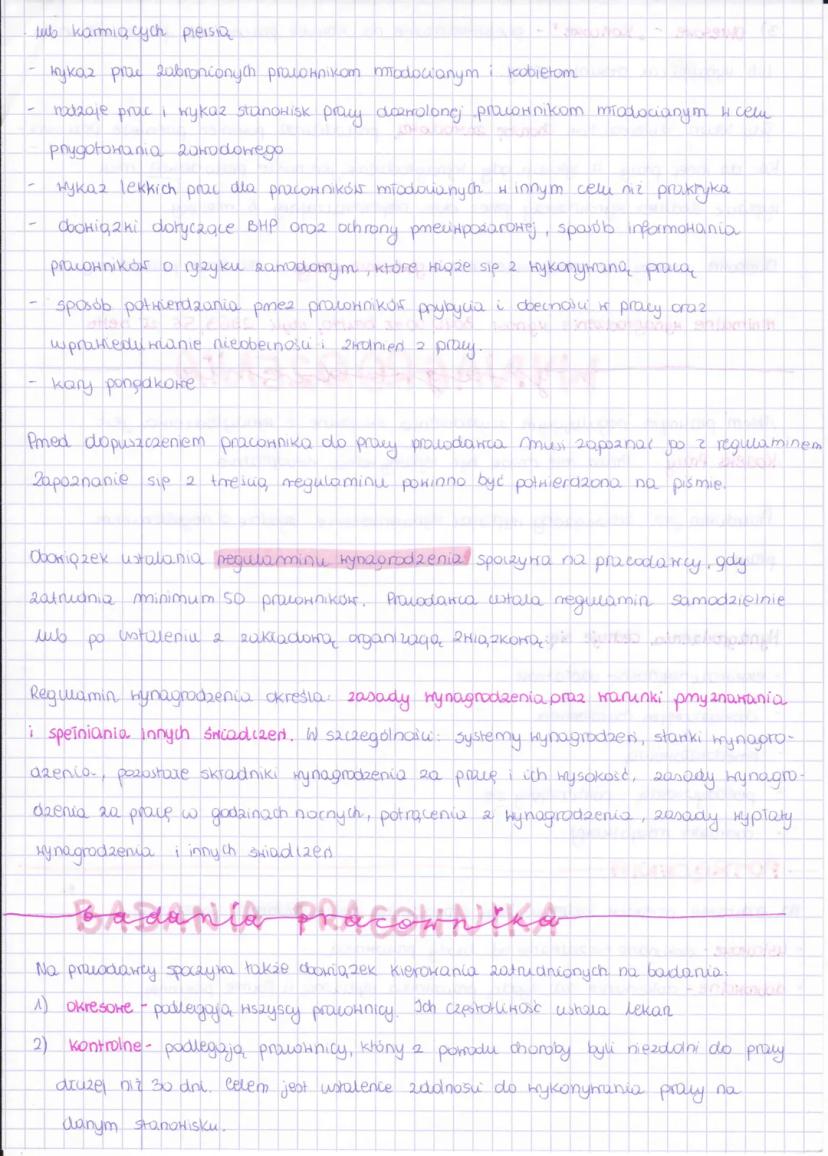 lub karmiących piersią
- wykaz prac zabronionych pracownikom młodocianym i kobietom
- rodzaje prac i wykaz stanowisk pracy dozwolonej pracownikom młodocianym w celu
przygotowania zawodowego
- wykaz lekkich prac dla pracowników młodocianych w innym celu niż praktyka
- obowiązki dotyczące BHP oraz ochrony przeciwpożarowej, sposób informowania
pracowników o ryzyku zawodowym, które wiąże się z wykonywaną pracą
- sposób potwierdzania przez pracowników przybycia i obecności w pracy oraz
wprawiedliwianie nieobecności i zwolnień z pracy.
- kary porządkowe
Przed dopuszczeniem pracownika do pracy pracodawca musi zapoznać go z regulaminem
Zapoznanie się z treścią regulaminu powinno być potwierdzona na piśmie.
Obowiązek ustalania regulaminu wynagrodzenia spoczywa na pracodawcy, gdy
zatrudnia minimum 50 pracowników. Pracodawca ustala regulamin samodzielnie
lub po ustaleniu z zakładową organizacją związkową.
Regulamin wynagrodzenia określa: zasady wynagrodzenia oraz warunki przyznawania
i spełniania innych świadczeń. W szczególności: systemy wynagrodzeń, stawki wynagro-
dzenia, pozostałe składniki wynagrodzenia za pracę i ich wysokość, zasady wynagro-
dzenia za pracę w godzinach nocnych, potrącenia z wynagrodzenia, zasady wypłaty
wynagrodzenia i innych świadczeń
BADANIA PRACOWNIKA
Na pracodawcy spoczywa także obowiązek kierowania zatrudnionych na badania:
1) okresowe - podlegają wszyscy pracownicy. Ich częstotliwość ustala lekarz
2) kontrolne - podlegają pracownicy, którzy z powodu choroby byli niezdolni do pracy
dłużej niż 30 dni. Celem jest ustalenie zdolności do wykonywania pracy na
danym stanowisku.